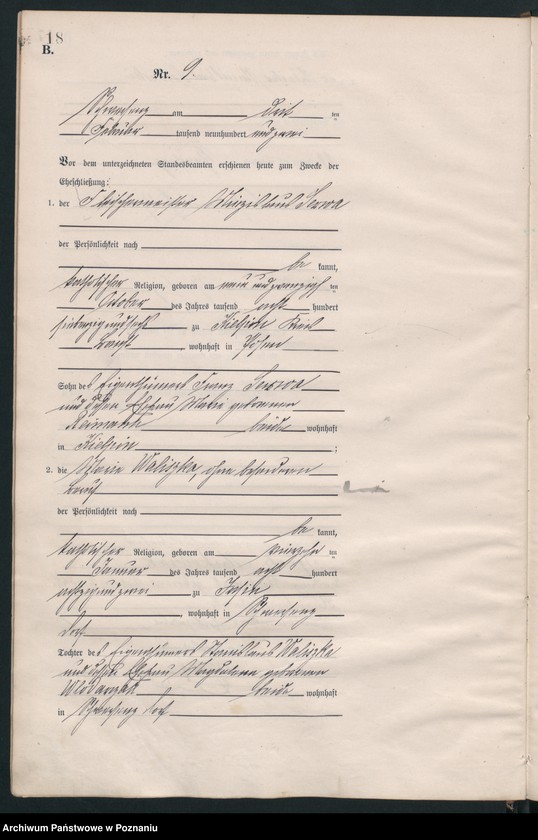 18
B.
Nr. 9.
am drit ten
Februar tausend neunhundert und zwei
Vor dem unterzeichneten Standesbeamten erschienen heute zum Zwecke der
Eheschließung:
1. der Fleischermeister
der Persönlichkeit nach
be kannt,
katholischer Religion, geboren am neun und zwanzig ten
Oktober des Jahres tausend acht hundert
siebenzig und sechs zu
wohnhaft in Posen
Sohn des Eigenthümers Franz
und dessen Ehefrau Marie geborenen
Reimann beide wohnhaft
in ;
2. die Maria Waliszka, ohne besonderen
Beruf
der Persönlichkeit nach
be kannt,
katholischer Religion, geboren am vierzehn ten
Januar des Jahres tausend acht hundert
achtzig und zwei zu
, wohnhaft in
Dorf
Tochter des Eigenthümers Stanislaus Waliszka
und dessen Ehefrau Magdalena geborenen
beide wohnhaft
in Dorf
Archiwum Państwowe w Poznaniu